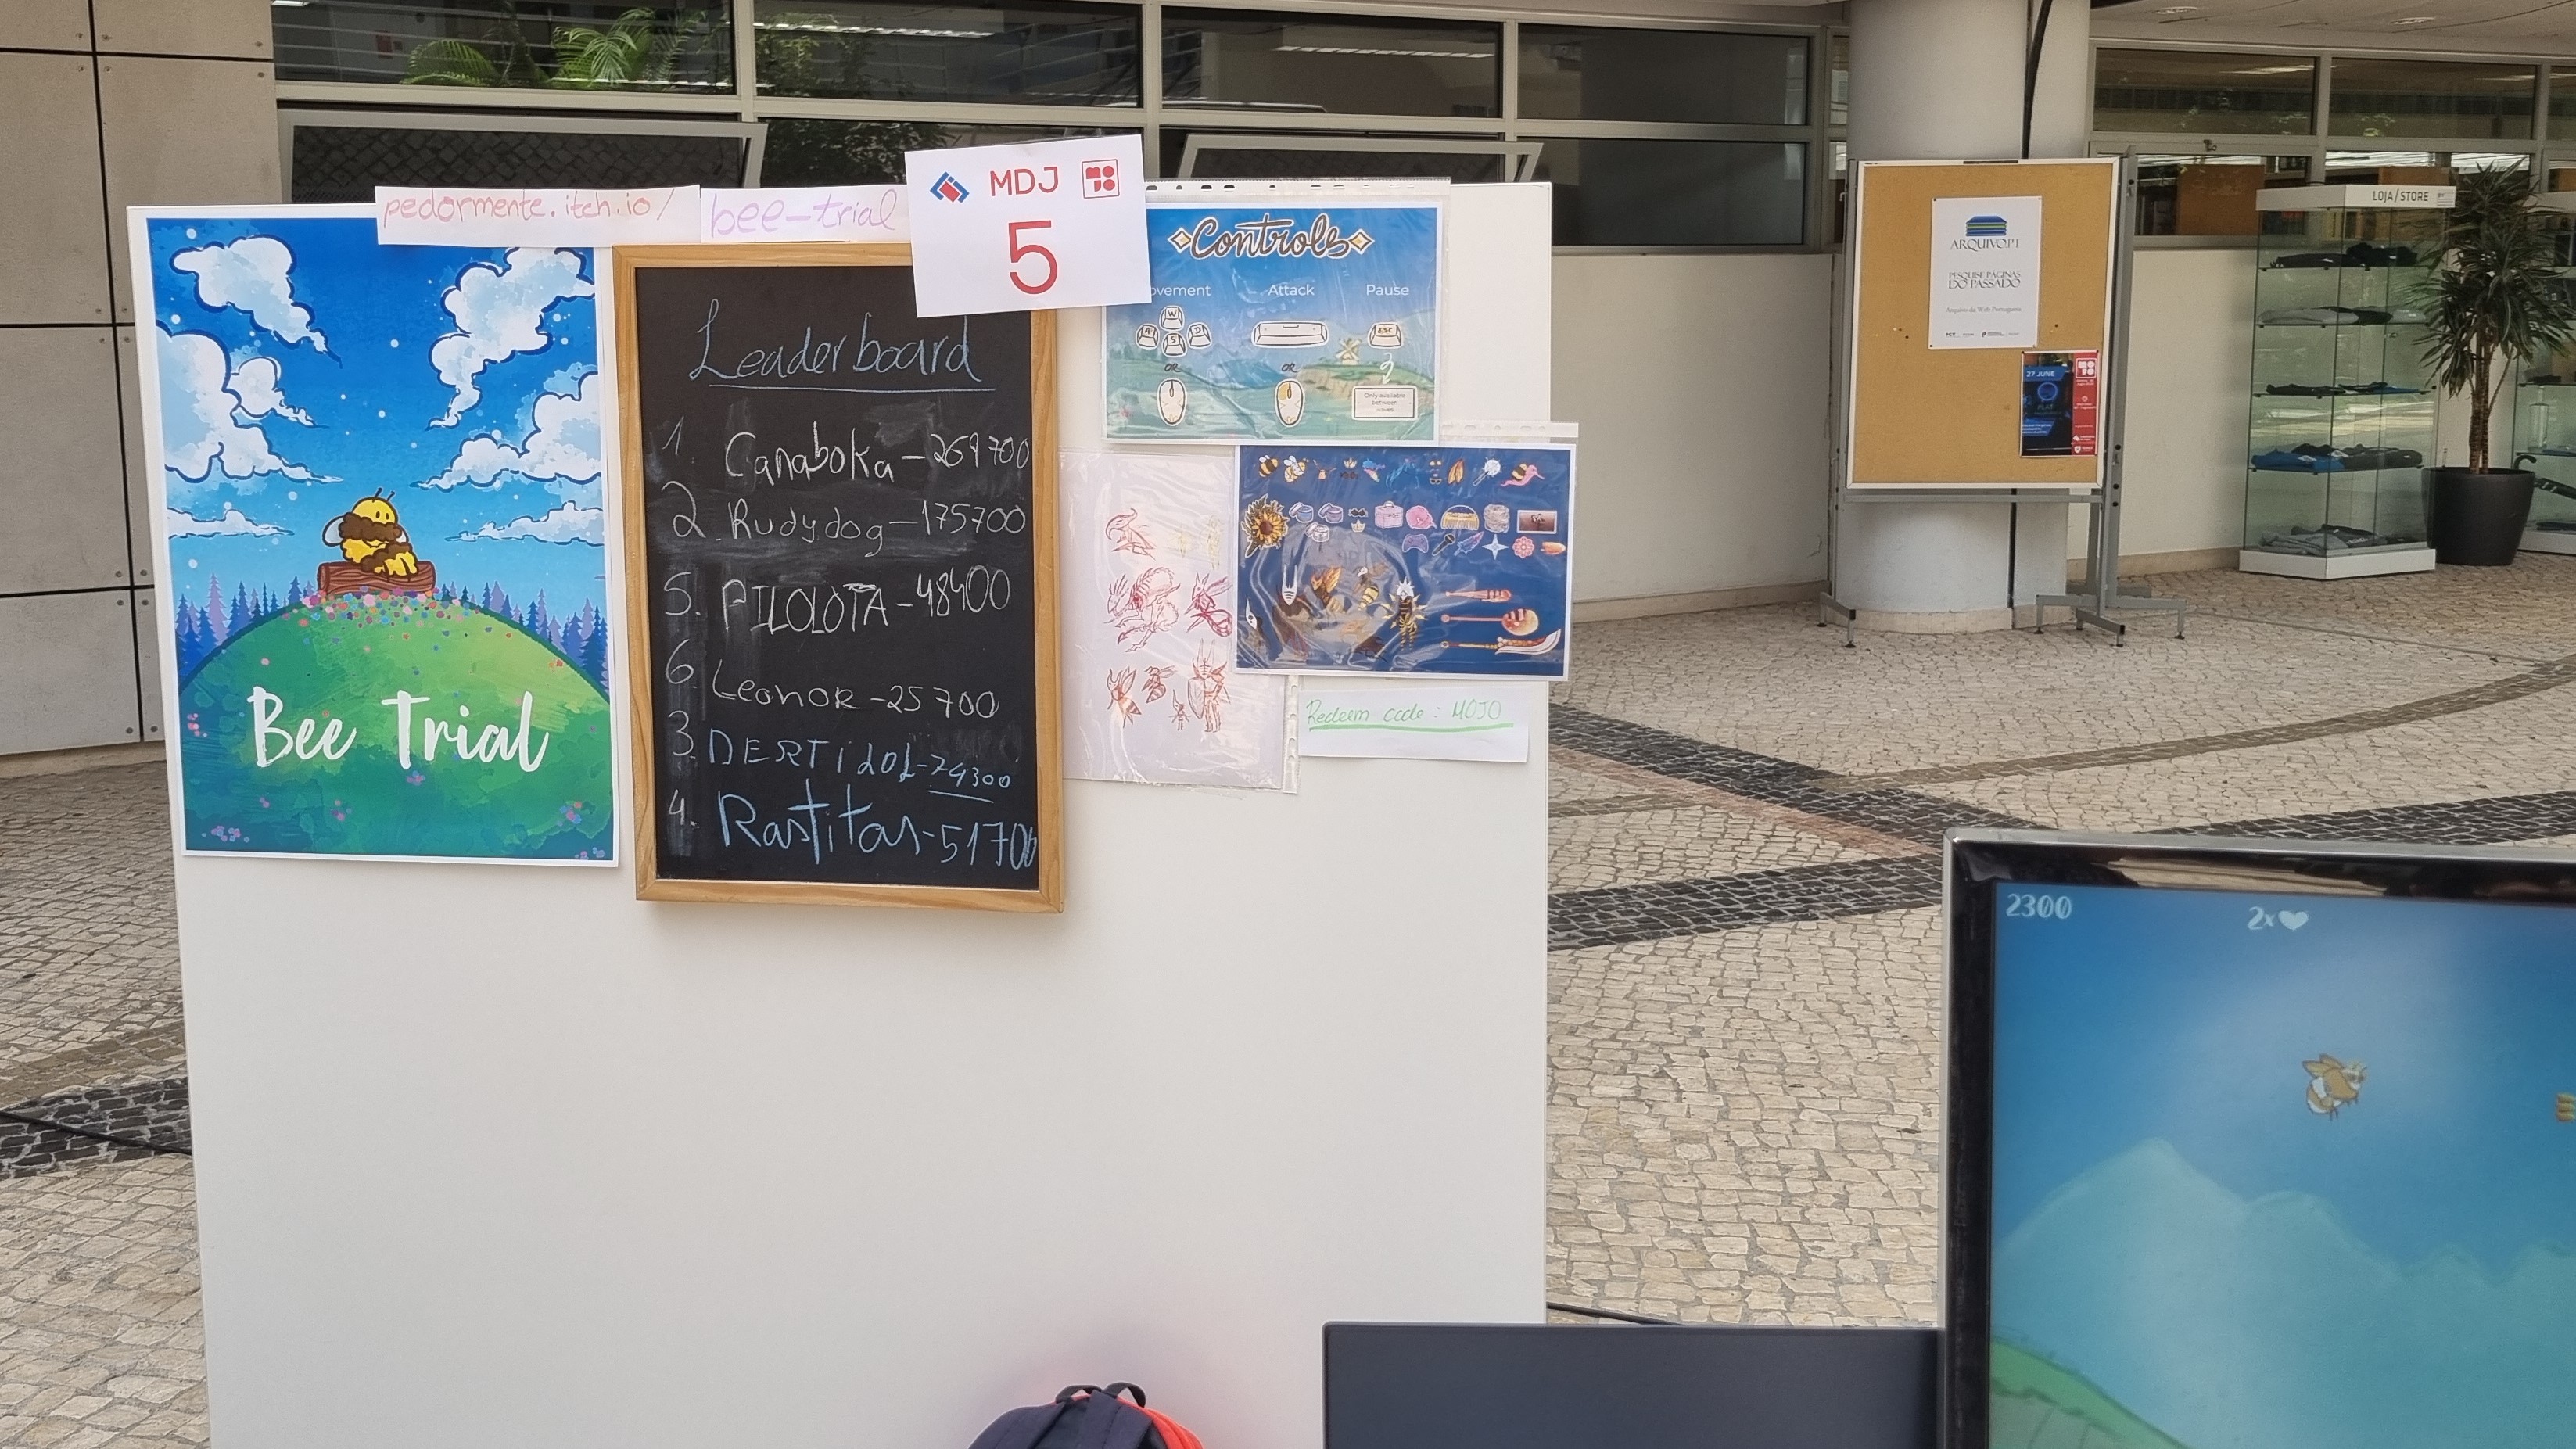 pedormente.itch.io/
bee-trial
MDJ
5
Bee Trial
Leaderboard
1. Canaboka - 269700
2. Rudydog - 175700
5. PILOLOTA - 48400
6. Leonor - 25700
3. DERTIdOL - 74300
4. Rastitas - 51700
Controls
ovement Attack Pause
W
A S D
ESC
OR OR
Only available
between
waves
Redeem code: MOJO
ARQUIVO.PT
PESQUISE PÁGINAS
DO PASSADO
Arquivo da Web Portuguesa
FCT
27 JUNE
LOJA/STORE
2300
2x